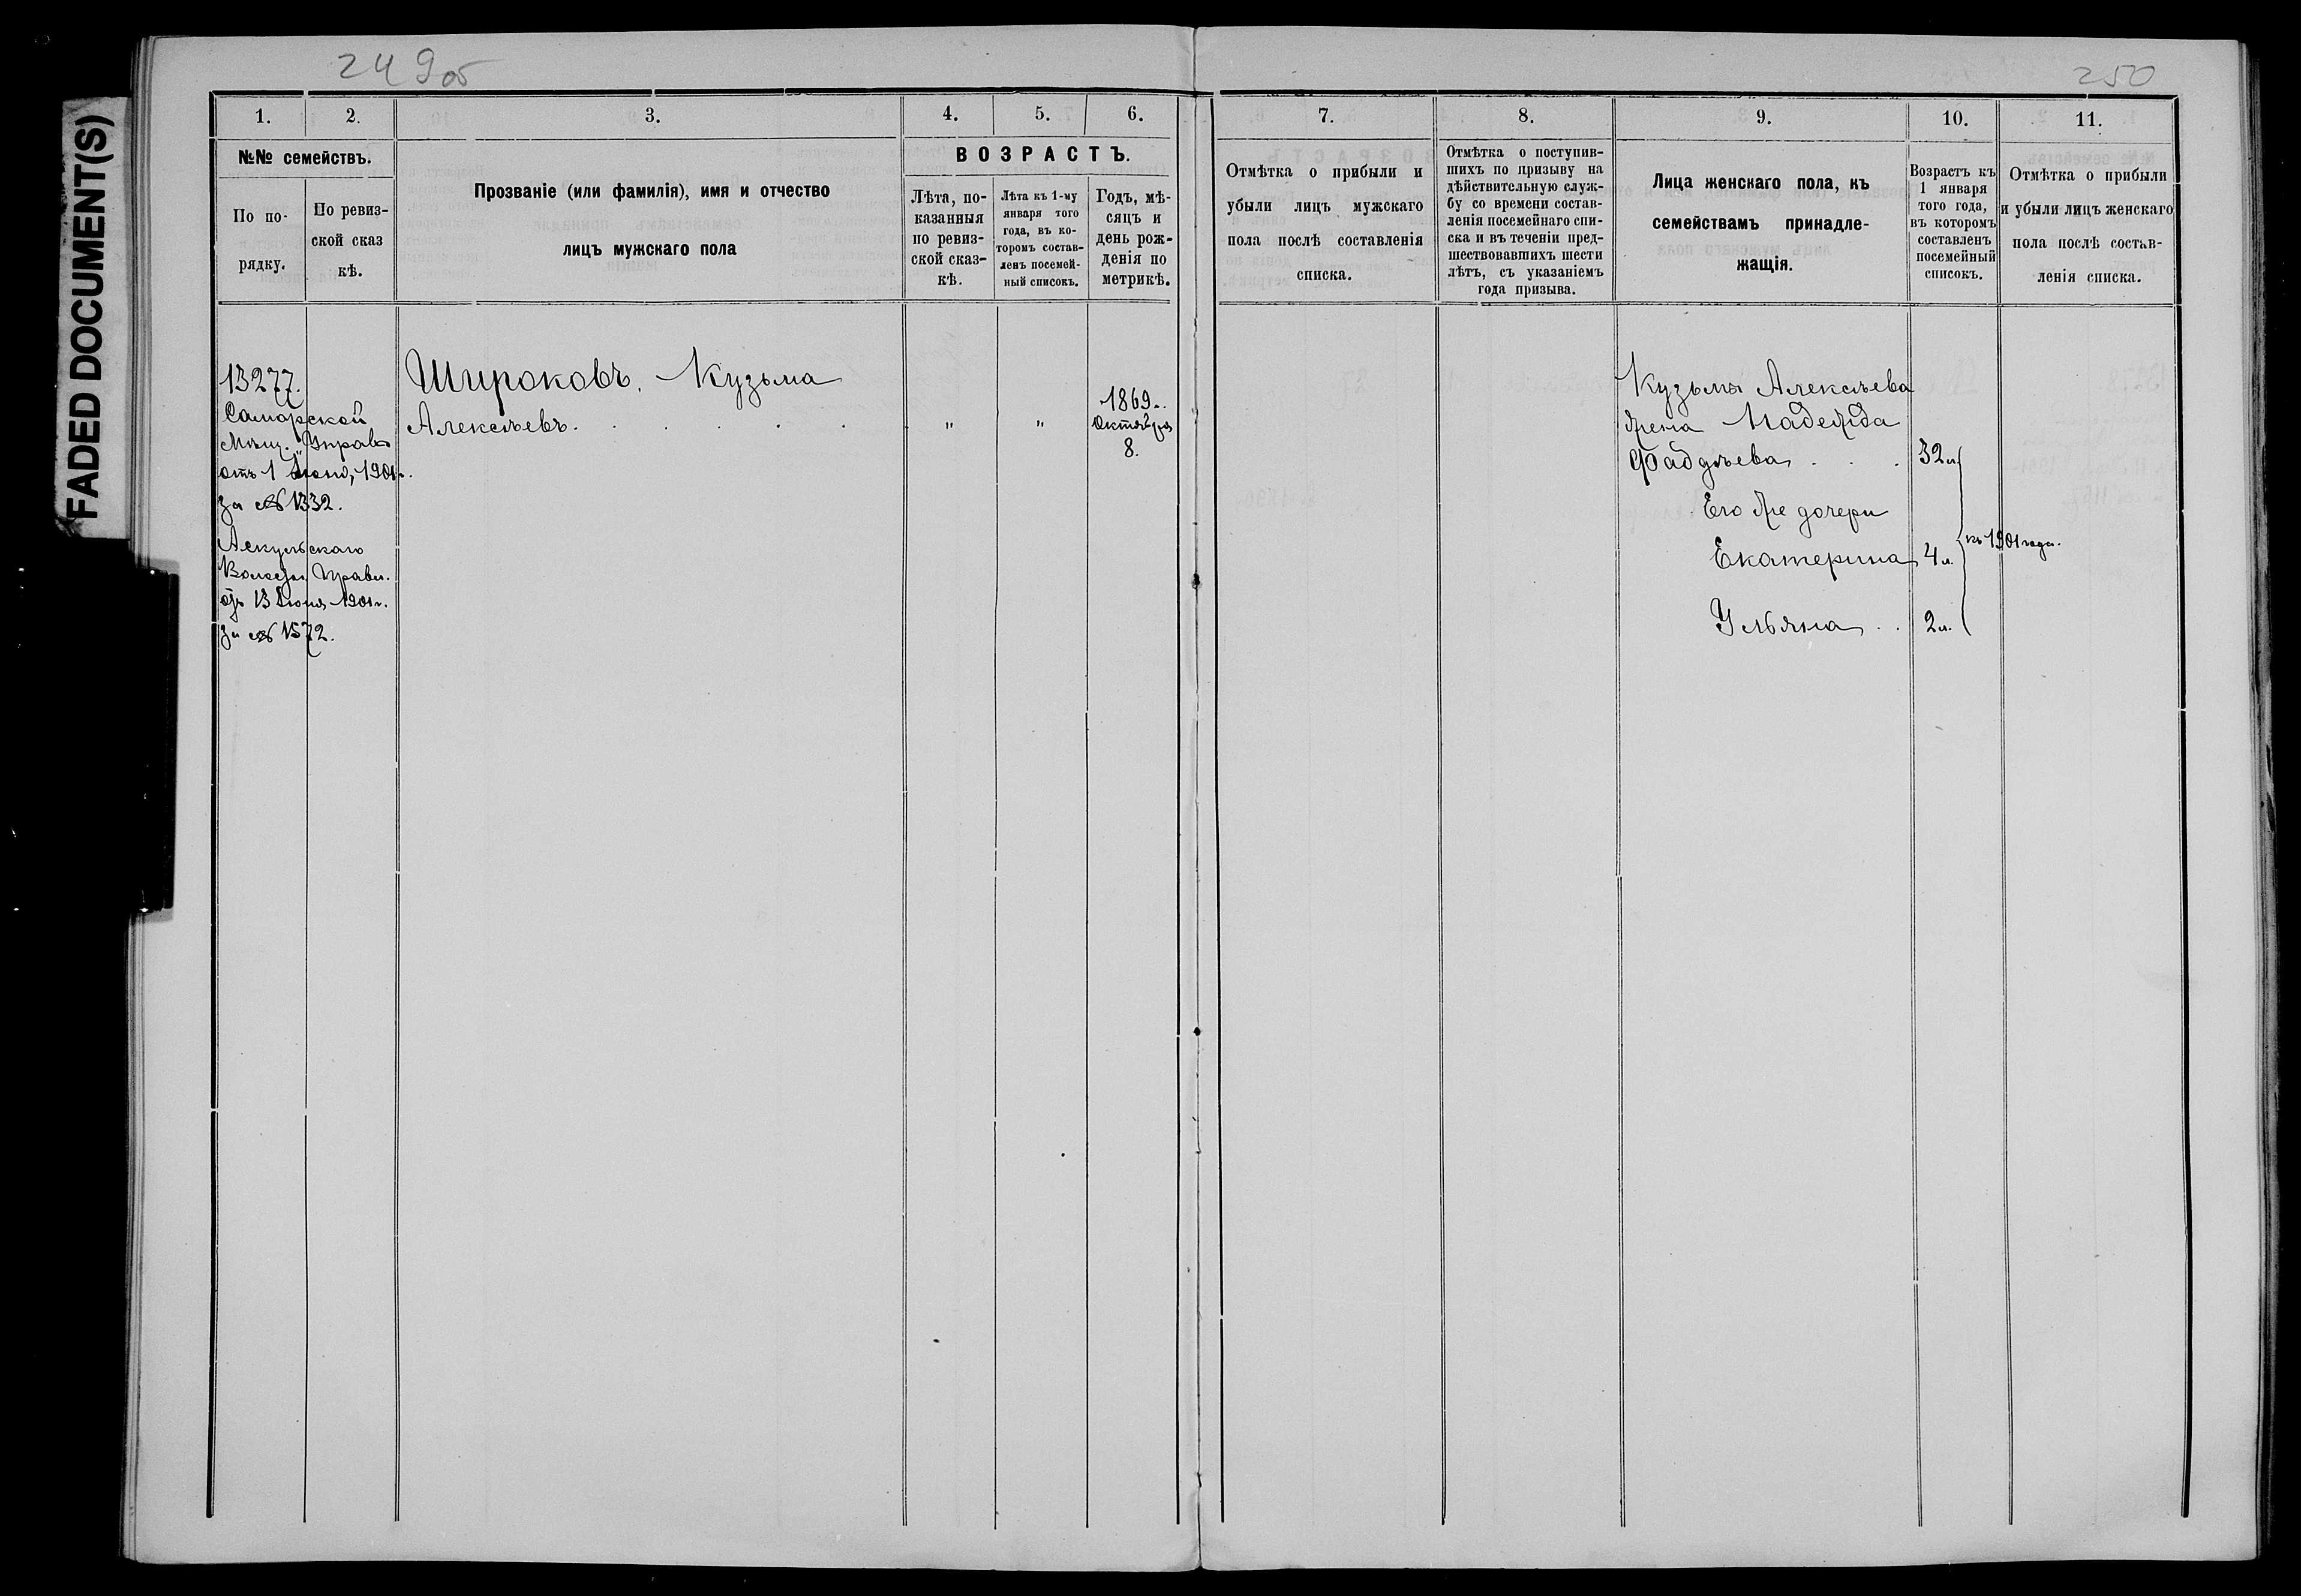 FADED DOCUMENT(S)
249об
1.
2.
3.
4.
5.
6.
№№ семействъ.
По по-
рядку.
По ревиз-
ской сказ
кѣ.
Прозваніе (или фамилія), имя и отчество
лицъ мужскаго пола
ВОЗРАСТЪ.
Лѣта, по-
казанныя
по ревиз-
ской сказ-
кѣ.
Лѣта къ 1-му
января того
года, въ ко-
торомъ состав-
ленъ посемей-
ный списокъ.
Годъ, мѣ-
сяцъ и
день рож-
денія по
метрикѣ.
13277.
Самарской
Мѣщ. Управы
отъ 1 Іюня, 1901г.
за № 1332.
Аскульскаго
Волостн. Правл.
отъ 13 Іюня 1901г.
за № 1572.
Широковъ, Кузьма
Алексѣевъ. . . . . .
"
"
1869г.
Октября
8.
250
7.
8.
9.
10.
11.
Отмѣтка о прибыли и
убыли лицъ мужскаго
пола послѣ составленія
списка.
Отмѣтка о поступив-
шихъ по призыву на
дѣйствительную служ-
бу со времени состав-
ленія посемейнаго спи-
ска и въ теченіи пред-
шествовавшихъ шести
лѣтъ, съ указаніемъ
года призыва.
Лица женскаго пола, къ
семействамъ принадле-
жащія.
Возрастъ къ
1 января
того года,
въ которомъ
составленъ
посемейный
списокъ.
Отмѣтка о прибыли
и убыли лицъ женскаго
пола послѣ состав-
ленія списка.
Кузьмы Алексѣева
жена Надежда
Фаддѣева . . . 32л.
Его же дочери
Екатерина 4л.
къ 1901 году.
Ульяна . . 2л.